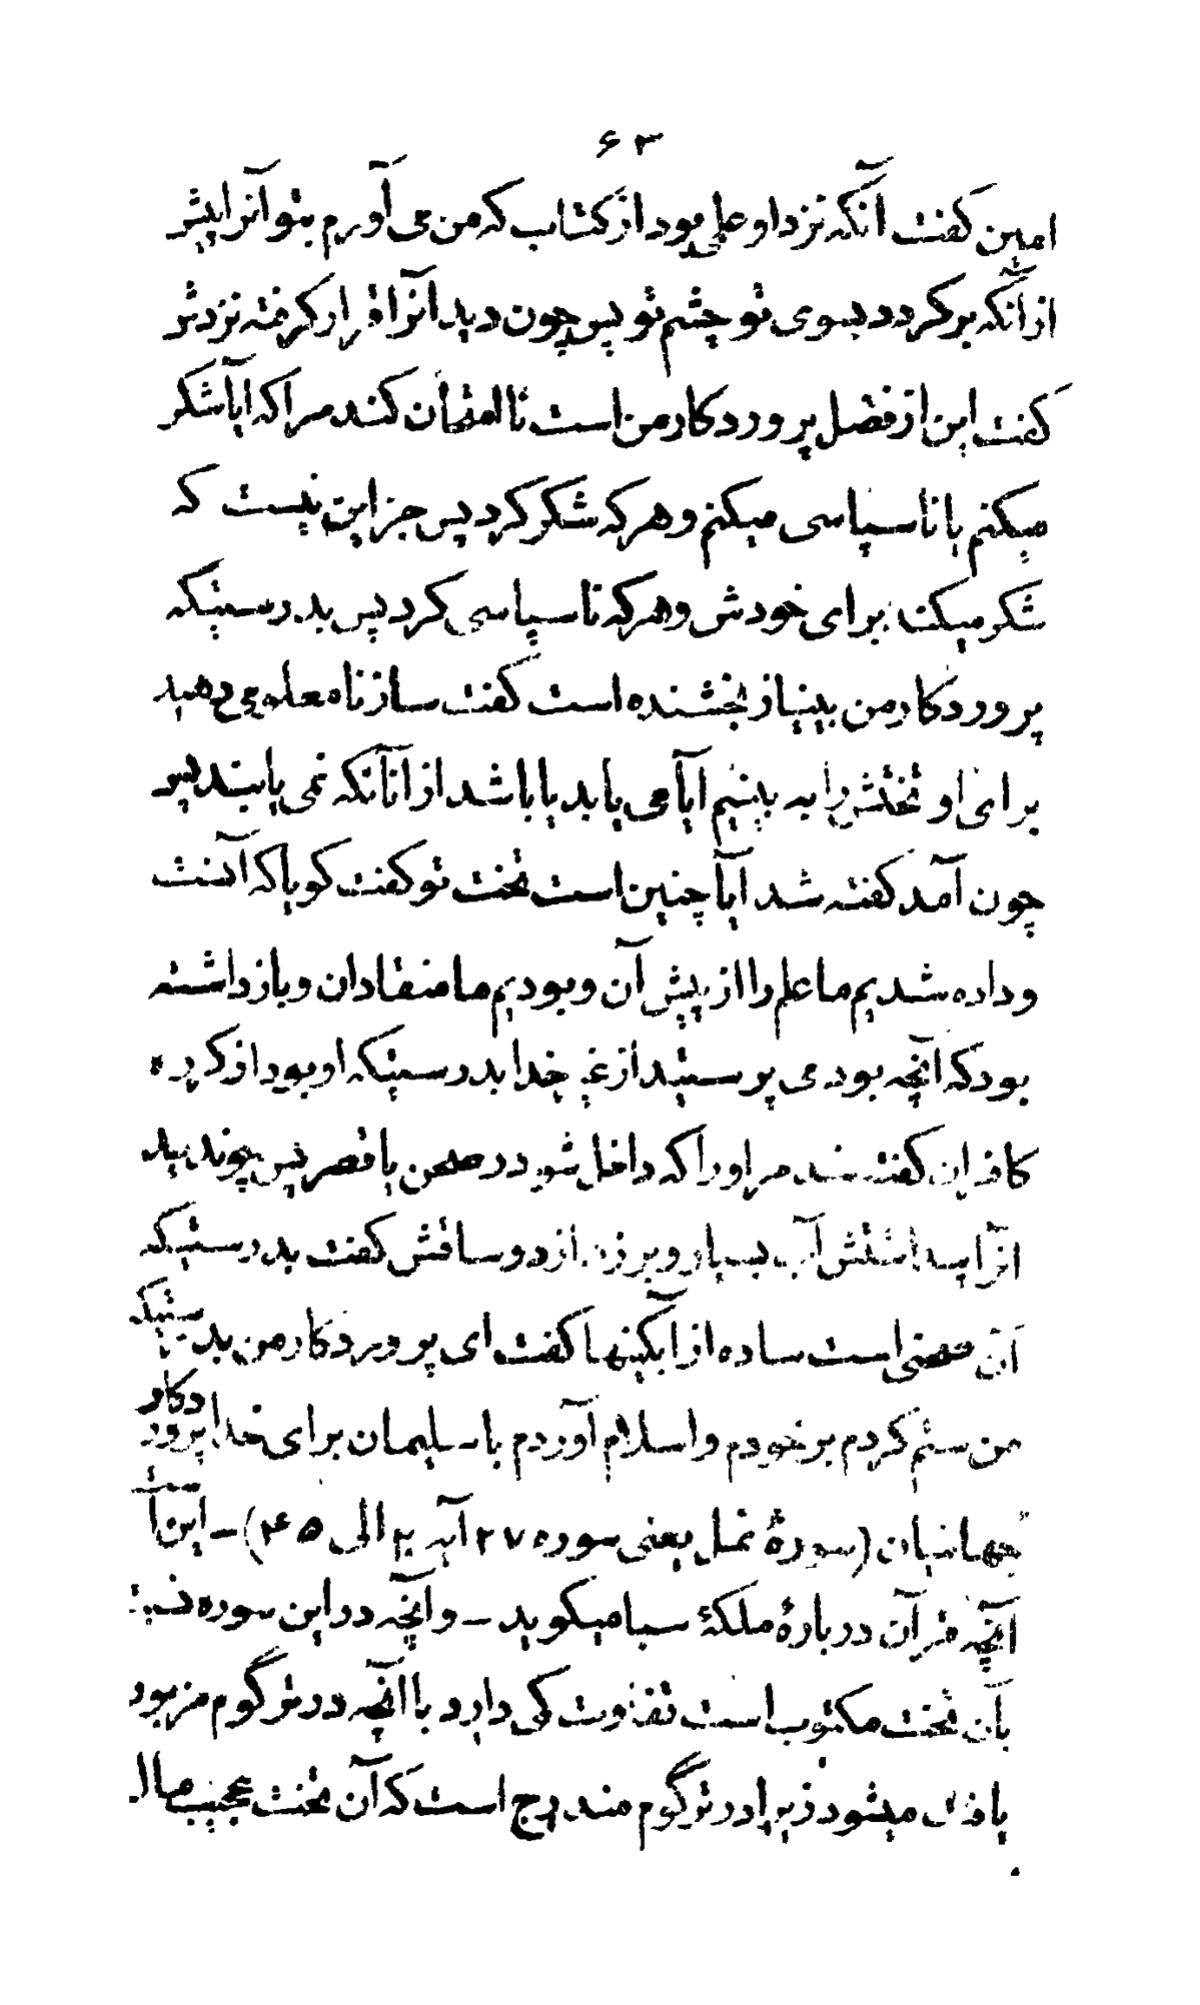 ۶۳
امین گفت آنکه نزد او علمی بود از کتاب که من می آورم بتو آنرا پیش
از آنکه برگردد بسوی تو چشم تو پس چون دید آنرا قرار گرفته نزدش
گفت این از فضل پروردگار من است تا امتحان کند مرا که آیا شکر
میکنم یا ناسپاسی میکنم و هر که شکر کرد پس جز این نیست که
شکر میکند برای خودش و هر که ناسپاسی کرد پس بدرستیکه
پروردگار من بینیاز بخشنده است گفت ساز نامعلومی دهید
برای او تختش را به بینیم آیا می یابد یا باشد از آنانکه نمی یابند پس
چون آمد گفته شد آیا چنین است تخت تو گفت گویا که آنست
و داده شدیم ما علم را از پیش آن و بودیم ما منقادان و بازداشته
بود که آنچه بود می پرستید از غیر خدا بدرستیکه او بود از گروه
کافران گفته شد مر او را که داخل شو در صحن یا قصر پس چون دید
آنرا پنداشتش آب بسیار و بر زد از دو ساقش گفت بدرستیکه
آن صحنی است ساده از آبگینها گفت ای پروردگار من بدرستیکه
من ستم کردم بر خودم و اسلام آوردم با سلیمان برای خدا پروردگار
جهانیان (سورهٔ نمل یعنی سوره ۲۷ آیه ۲۰ الی ۴۵) ـ این است
آنچه قرآن دربارهٔ ملکهٔ سبا میگوید ـ و آنچه در این سوره نسبت
بآن تخت مکتوب است تفاوت کمی دارد با آنچه در ترگوم مزبور
یافت میشود زیرا در ترگوم مندرج است که آن تخت عجیب مال